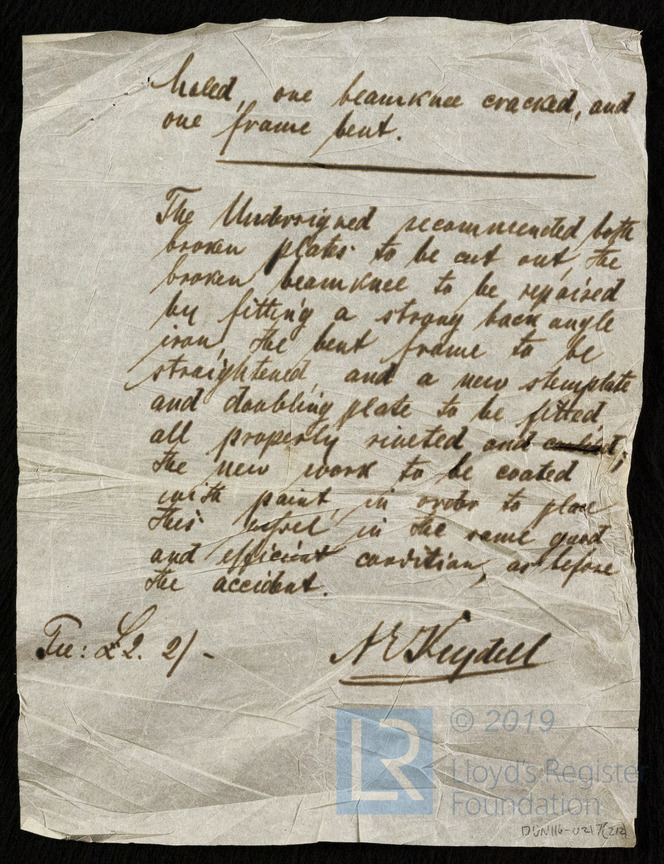 holed, one beamknee cracked, and
one frame bent.
The Undersigned recommended both
broken plates to be cut out, the
broken beamknee to be repaired
by fitting a strong back angle
iron, the bent frame to be
straightened, and a new stemplate
and doubling plate to be fitted
all properly riveted and
the new work to be coated
with paint, in order to place
this vessel in the same good
and efficient condition, as before
the accident.
Fee: £2. 2/-
N E Keydell
LR
© 2019
Lloyd's Register
Foundation